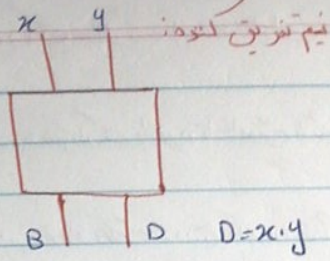 نیم تفریق کننده:
x y
B D D=x.y